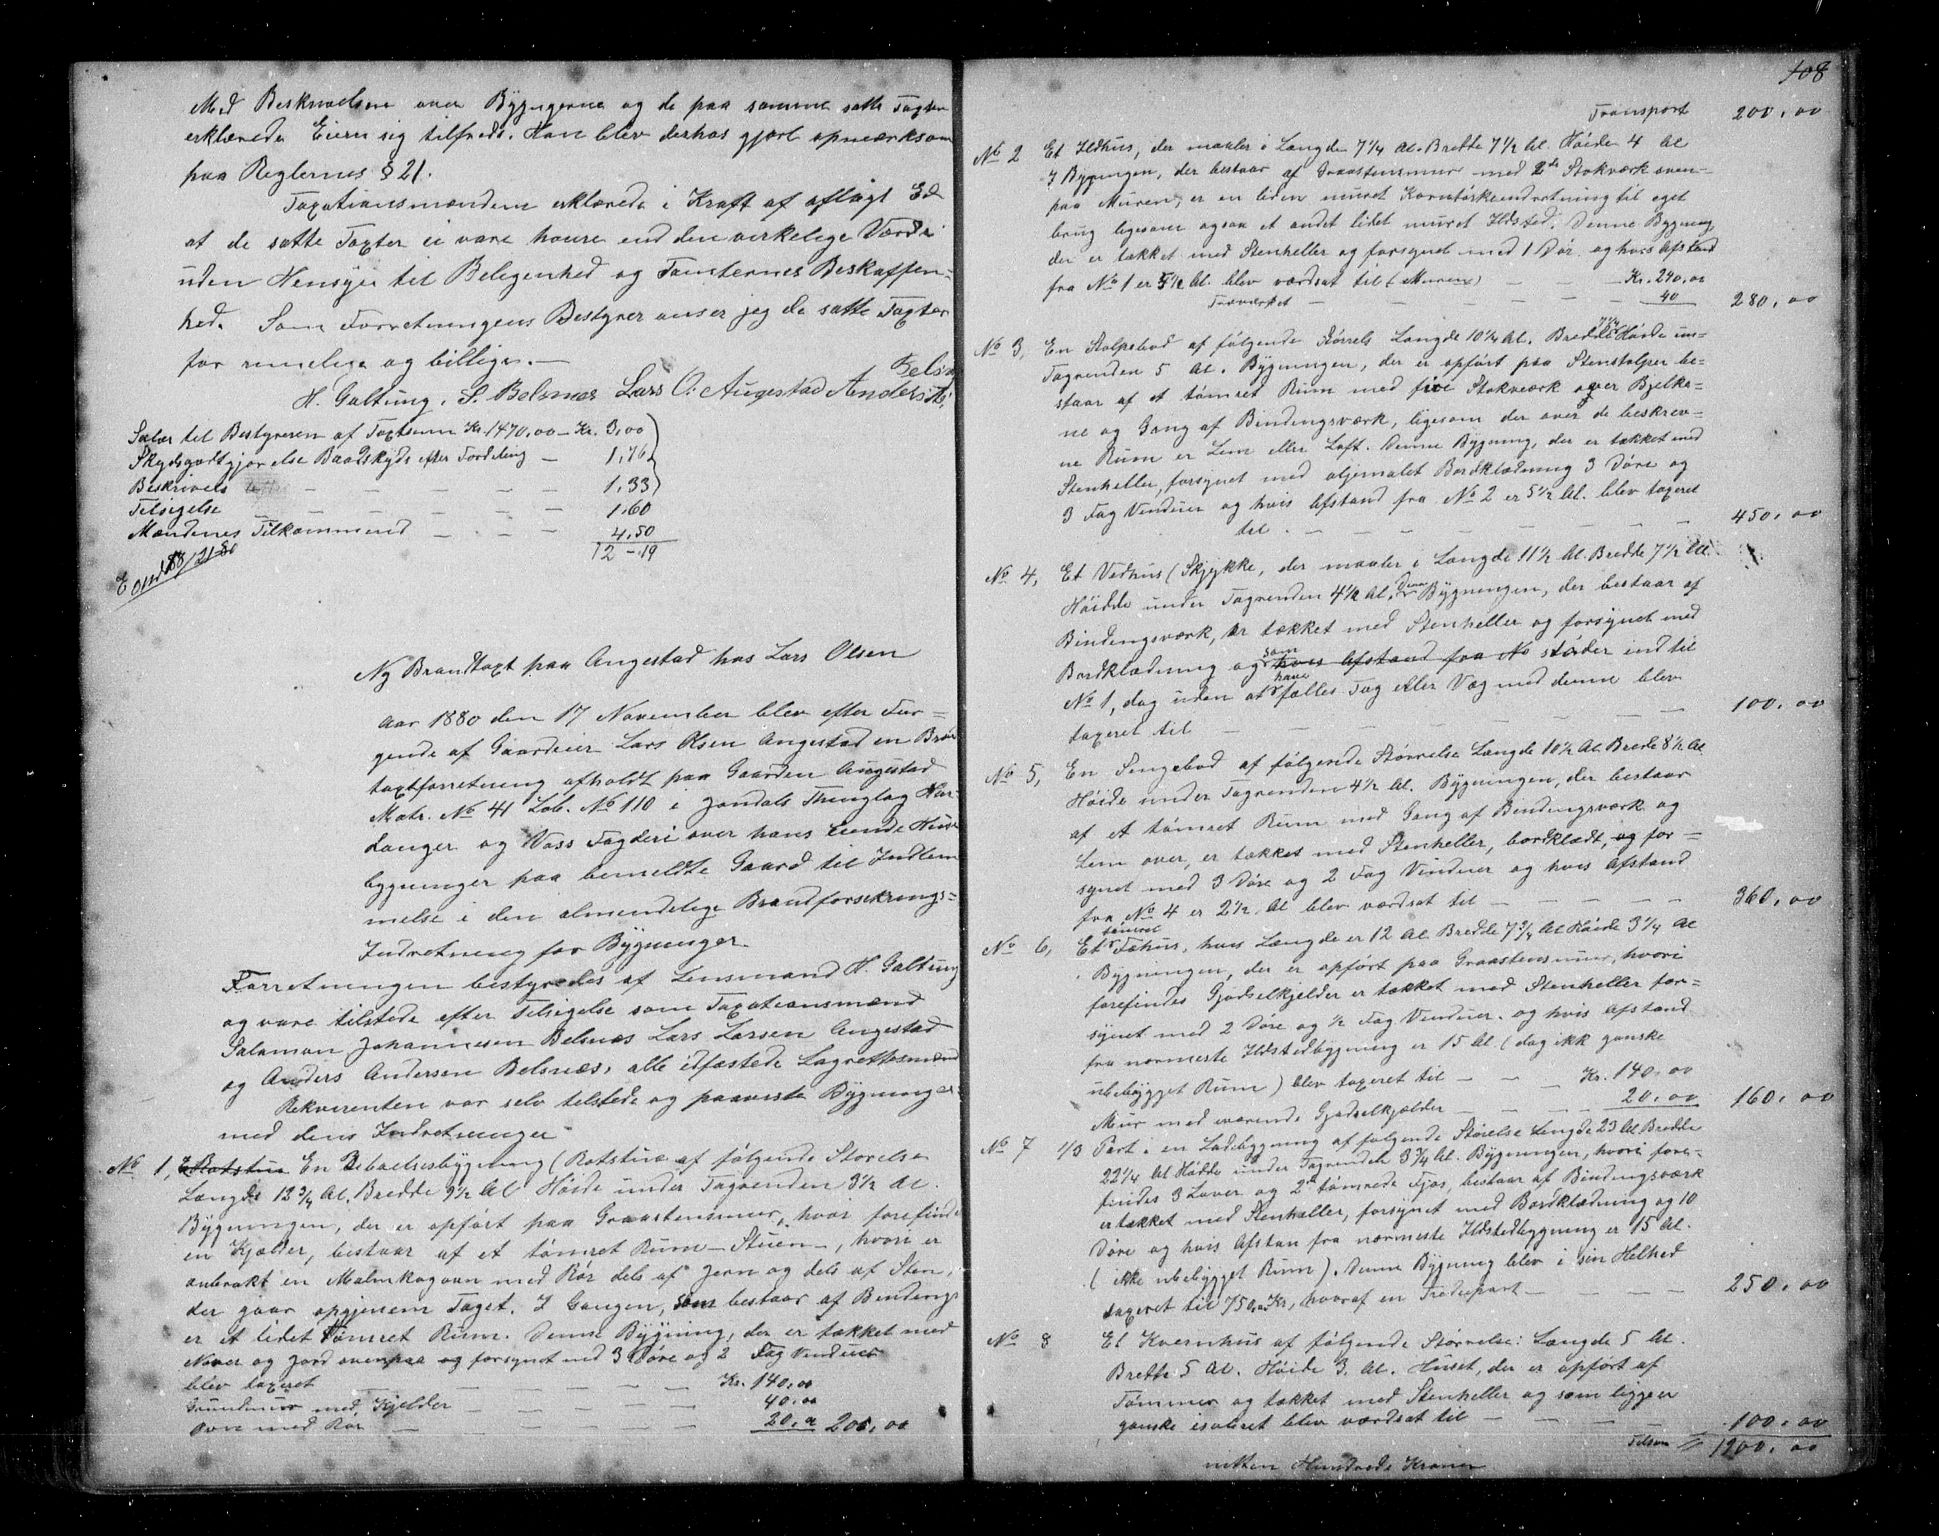 Med Beskrivelsen over Bygngerne og de paa samme satte Taxter
erklærede Eieren sig tilfreds. Han blev derhos gjort opmærksom
paa Reglernes § 21.
Taxationsmændene erklærede i Kraft af aflagt Ed
at de satte Taxter ei vare høiere end den virkelige Værdi
uden Hensyn til Belegenhed og Tomternes Beskaffen-
hed. Som Forretningens Bestyrer anser jeg de satte Taxter
for rimelige og billige. —
H. Galtung. S. Belsnæs Lars O. Augestad Anders A. Belsn
Salær til Bestyreren af Taxtsum Kr. 1470,00 — Kr. 3,00
Skydsgodtgjørelse Baadskyds efter Fordeling — 1,76
Beskrivels — — — — — 1,33
Tilsigelse — — — — — 1,60
Mændenes Tilkommend — — — 4,50
12 — 19
Ny Brandtaxt paa Augestad hos Lars Olsen
Aar 1880 den 17 November blev efter For-
gende af Gaardeier Lars Olsen Augestad en Bran
taxtforretning afholdt paa Gaarden Augestad
Matr. No 41 Løb. No 110 i Jondals Thinglag Har-
danger og Voss Fogderi over hans eiende Huse
bygninger paa bemeldte Gaard til Indlem
melse i den almendelige Brandforsikrings-
Indretning for Bygninger.
Forretningen bestyredes af Lensmand H. Galtung
og vare tilstede efter Tilsigelse som Taxationsmænd
Salamon Johannesen Belsnæs Lars Larsen Augestad
og Anders Andersen Belsnæs, alle edfæstede Lagrettsmænd
Rekvirenten var selv tilstede og paaviste Bygninger
med dens Indretninger
No 1, E Røtstue En Beboelsesbygning (Røtstue af følgende Størrelse
Længde 12 3/4 Al. Bredde 9 1/2 Al Høide under Tagrenden 3 1/2 Al.
Bygningen, der er opført paa Graastensmur, hvor forefinde
en Kjælder, bestaar af et tømret Rum — Stuen —, hvori er
anbrakt en Malmkogovn med Rør dels af Jern og dels af Sten,
der gaar opgjenem Taget. I Gangen, som bestaar af Bindings
er et lidet tømret Rum. Denne Bygning, der er tækket med
Næver og Jord ovenpaa og forsynet med 3 Døre og 2 Fag Vinduer
blev taxeret — — — — — Kr. 140,00
Grundmur med Kjelder — — — — 40,00
Ovn med Rør — — — — 20,00 200,00
108
Transport 200,00
No 2 Et Ildhus, der maaler i Længde 7 1/4 Al. Bredde 7 1/2 Al. Høide 4 Al
I Bygningen, der bestaar af Graastensmur med 2de Stokværk oven-
paa Muren, er en liden muret Korntørkeindretning til eget
brug ligesom ogsaa et andet lidet muret Ildsted. Denne Bygning
der er tækket med Stenheller og forsynet med 1 Dør og hvis Afstand
fra No 1 er 5 1/2 Al. blev værdsat til (Muren) — — Kr. 240,00
Træværket — — — — — 40 280,00
No 3, En Stolpebod af følgende Størrels Længde 10 1/4 Al. Bredde 7 1/4 Høide un-
Tagrenden 5 Al. Bygningen, der er opført paa Stenstolper be-
staar af et tømret Rum med fire Stokværk over Bjelke-
ne og Gang af Bindingsværk, ligesom der over de beskrev-
ne Rum er Lem eller Loft. Denne Bygning, der er tækket med
Stenheller, forsynet med oljemalet Bordklædning 3 Døre og
3 Fag Vinduer og hvis Afstand fra No 2 er 5 1/2 Al. blev taxeret
til — — — — — — — 450,00
No 4, Et Vedhus (Skjykke, der maaler i Længde 11 1/2 Al. Bredde 7 1/2 Al.
Høidde under Tagrenden 4 1/2 Al. Denne Bygningen, der bestaar af
Bindingsværk, er tækket med Stenheller og forsynet med
Bordklædning og som hvis Afstand fra No støder ind til
No 1, dog uden at have fælles Tag eller Væg med denne blev
taxeret til — — — — — — 100,00
No 5, En Sengebod af følgende Størrelse Længde 10 1/2 Al Brede 8 1/2 Al
Høide under Tagrenden 4 1/2 Al. Bygningen, der bestaar
af et tømret Rum med Gang af Bindingsværk og
Lem over, er tækket med Stenheller, bordklædt, og for-
synet med 3 Døre og 2 Fag Vinduer og hvis Afstand
fra No 4 er 2 1/2 Al blev værdsat til — — — — 360,00
No 6, Et tømret Fæhus, hvis Længde er 12 Al Bredde 7 3/4 Al Høide 3 1/4 Al
Bygningen, der er opført paa Graastensmur, hvori
forefindes Gjødselkjelder er tækket med Stenheller for-
synet med 2 Døre og 1/2 Fag Vinduer. og hvis Afstand
fra nærmeste Ildstedbygning er 15 Al. (dog ikk ganske
ubebygget Rum) blev taxeret til — — — Kr. 140,00
Mur med værende Gjødselkjælder — — — 20,00 160,00
No 7 1/3 Part i en Ladebygning af følgende Størelse Længde 23 Al Bredde
22 1/4 Al Høide under Tagrenden 3 3/4 Al. Bygningen, hvori fore-
findes 3 Laver og 2de tømrede Fjøs, bestaar af Bindingsværk
er tækket med Stenhæller, forsynet med Bordklædning og 10
Døre og hvis Afstan fra nærmeste Ildstedbygning er 15 Al.
(ikke ubebygget Rum). Denne Bygning blev i sin Helhed
taxeret til 750,00 Kr, hvoraf en Trediepart — — — 250,00
No 8 Et Kvernhus af følgende Størrelse: Længde 5 Al.
Bredde 5 Al. Høide 3. Al. Huset, der er opført af
Tømmer og tækket med Stenheller og som ligger
ganske isoleret blev værdsat til — — — 100,00
Tilsam 1900,00
nitten Hundrede Kroner